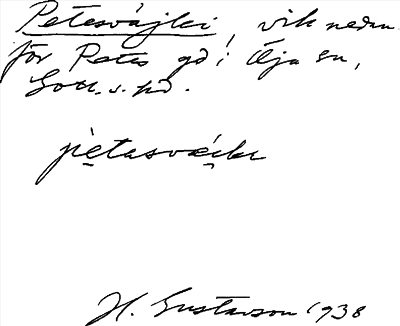 Petesvajlei, vik nedan
för Petes gd i Öja sn,
Gotl. s. hd.
pètasvaikɩ
H. Gustavson 1938